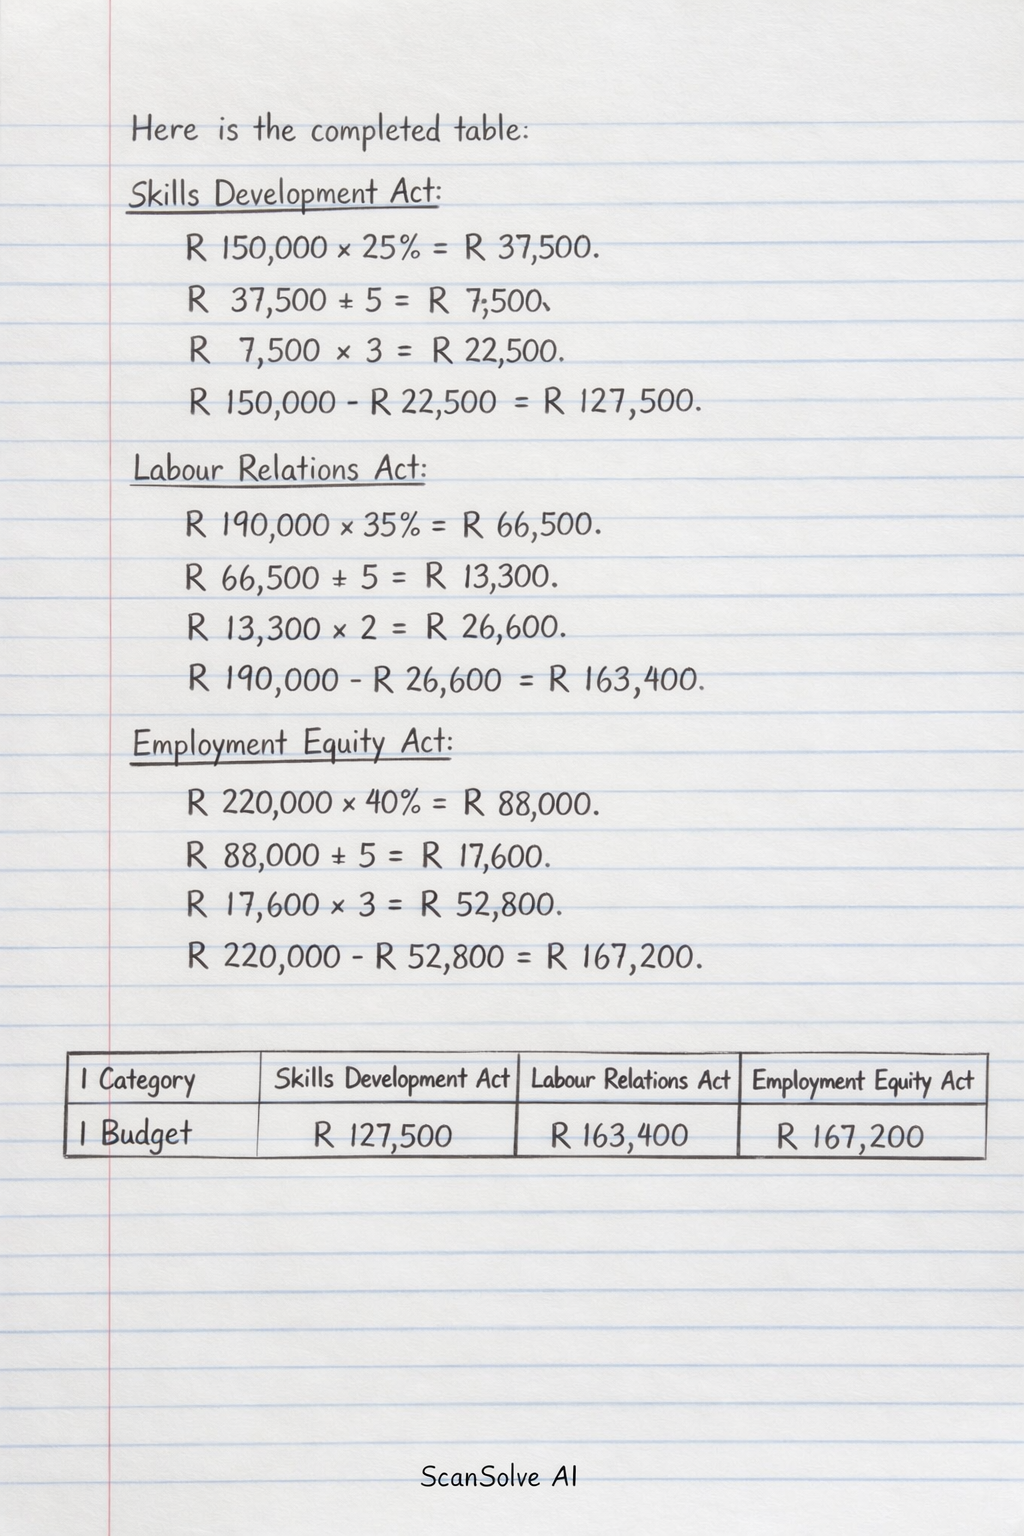 Here is the completed table:
Skills Development Act:
R 150,000 × 25% = R 37,500.
R 37,500 ÷ 5 = R 7;500.
R 7,500 × 3 = R 22,500.
R 150,000 - R 22,500 = R 127,500.
Labour Relations Act:
R 190,000 × 35% = R 66,500.
R 66,500 ÷ 5 = R 13,300.
R 13,300 × 2 = R 26,600.
R 190,000 - R 26,600 = R 163,400.
Employment Equity Act:
R 220,000 × 40% = R 88,000.
R 88,000 ÷ 5 = R 17,600.
R 17,600 × 3 = R 52,800.
R 220,000 - R 52,800 = R 167,200.
| Category Skills Development Act Labour Relations Act Employment Equity Act
| Budget R 127,500 R 163,400 R 167,200
ScanSolve AI